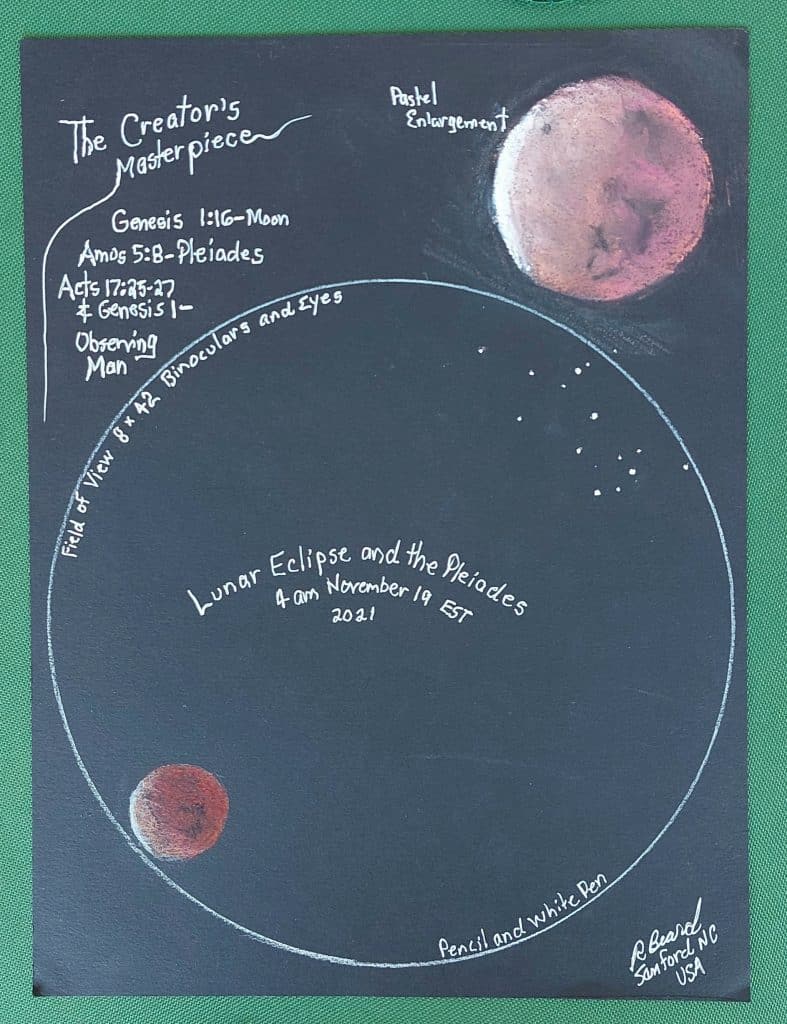 The Creator's
Masterpiece
Genesis 1:16-Moon
Amos 5:8-Pleiades
Acts 17:25-27
& Genesis 1-
Observing
Man
Pastel
Enlargement
Field of View 8 x 42 Binoculars and Eyes
Lunar Eclipse and the Pleiades
4 am November 19 EST
2021
Pencil and White Pen
R Beard
Sanford NC
USA